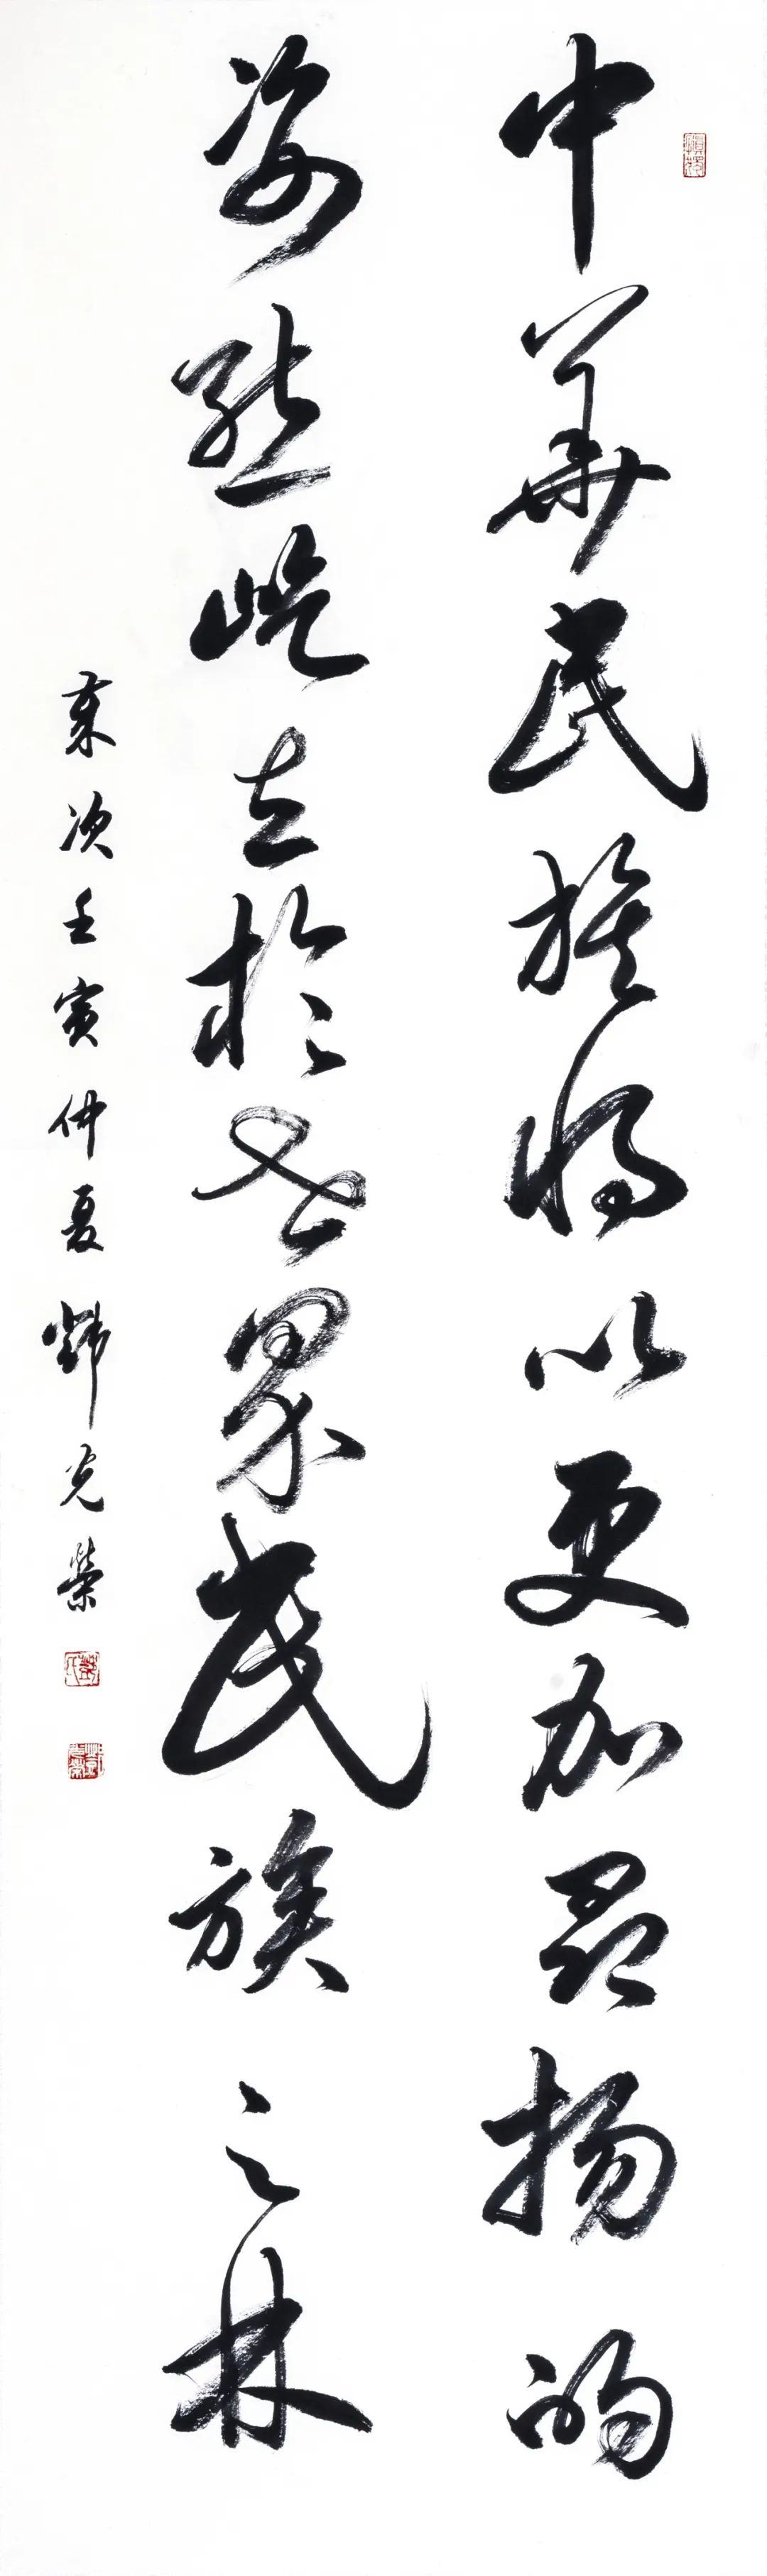 中華民族将以更加昂揚的
姿態屹立於世界民族之林
歲次壬寅仲夏鄧光榮